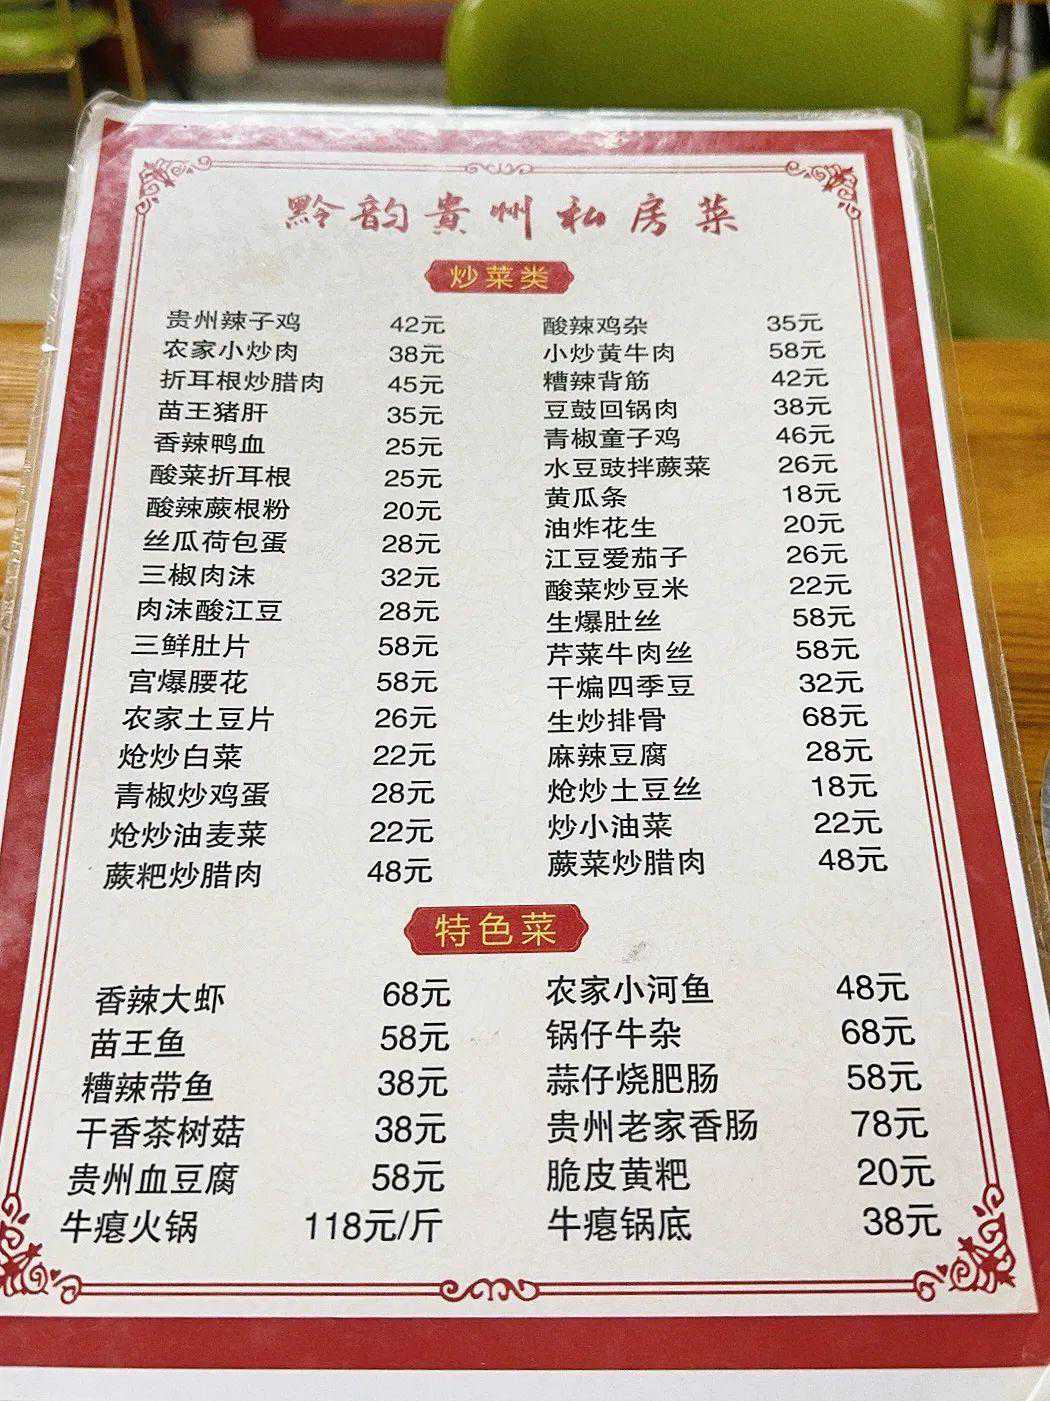 黔韵贵州私房菜
炒菜类
贵州辣子鸡 42元
农家小炒肉 38元
折耳根炒腊肉 45元
苗王猪肝 35元
香辣鸭血 25元
酸菜折耳根 25元
酸辣蕨根粉 20元
丝瓜荷包蛋 28元
三椒肉沫 32元
肉沫酸江豆 28元
三鲜肚片 58元
宫爆腰花 58元
农家土豆片 26元
炝炒白菜 22元
青椒炒鸡蛋 28元
炝炒油麦菜 22元
蕨粑炒腊肉 48元
酸辣鸡杂 35元
小炒黄牛肉 58元
糟辣背筋 42元
豆鼓回锅肉 38元
青椒童子鸡 46元
水豆豉拌蕨菜 26元
黄瓜条 18元
油炸花生 20元
江豆爱茄子 26元
酸菜炒豆米 22元
生爆肚丝 58元
芹菜牛肉丝 58元
干煸四季豆 32元
生炒排骨 68元
麻辣豆腐 28元
炝炒土豆丝 18元
炒小油菜 22元
蕨菜炒腊肉 48元
特色菜
香辣大虾 68元
苗王鱼 58元
糟辣带鱼 38元
干香茶树菇 38元
贵州血豆腐 58元
牛瘪火锅 118元/斤
农家小河鱼 48元
锅仔牛杂 68元
蒜仔烧肥肠 58元
贵州老家香肠 78元
脆皮黄粑 20元
牛瘪锅底 38元